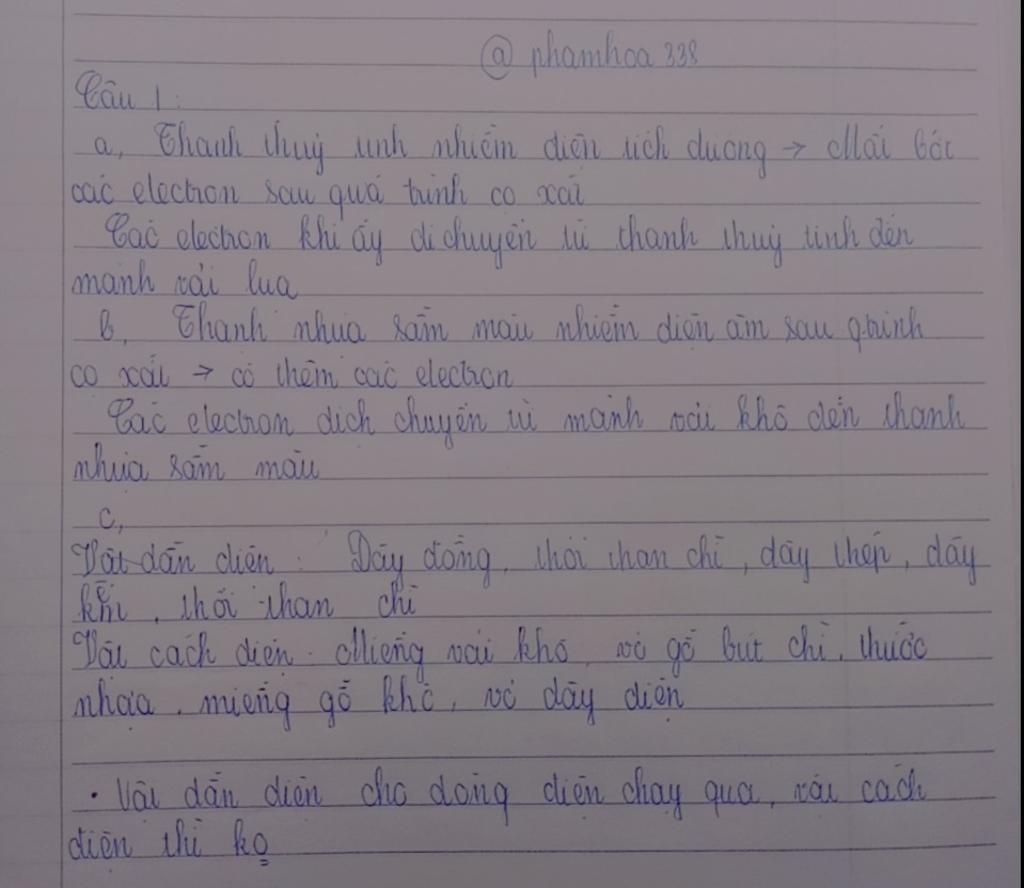 @ phamhoa 338
Câu 1:
a, Thanh thuỷ tinh nhiễm điện tích dương → Mất bớt
các electron sau quá trình cọ xát
Các electron khi ấy di chuyển từ thanh thuỷ tinh đến
mảnh vải lụa
b, Thanh nhựa sẫm màu nhiễm điện âm sau q.trình
cọ xát → có thêm các electron
Các electron dịch chuyển từ mảnh vải khô đến thanh
nhựa sẫm màu
c,
Vật dẫn điện : Dây đồng, thỏi than chì, dây thép, dây
kẽm, thỏi than chì
Vật cách điện : Miếng vải khô, vỏ gỗ bút chì, thước
nhựa, miếng gỗ khô, vỏ dây điện
• Vật dẫn điện cho dòng điện chạy qua, vật cách
điện thì ko